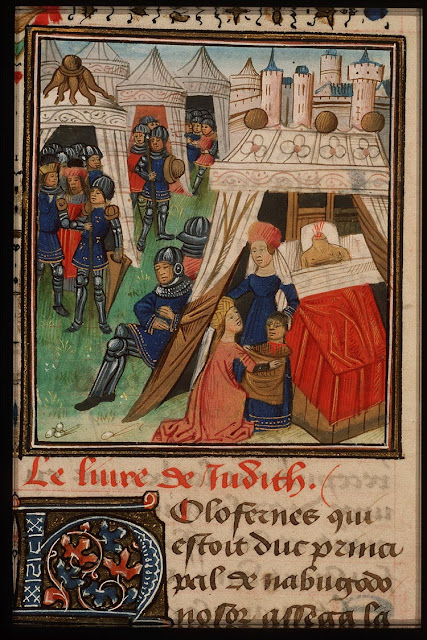 Le liure de Judith.
HOlofernes qui
estoit duc princi
pal de nabugodo
nosor assega la